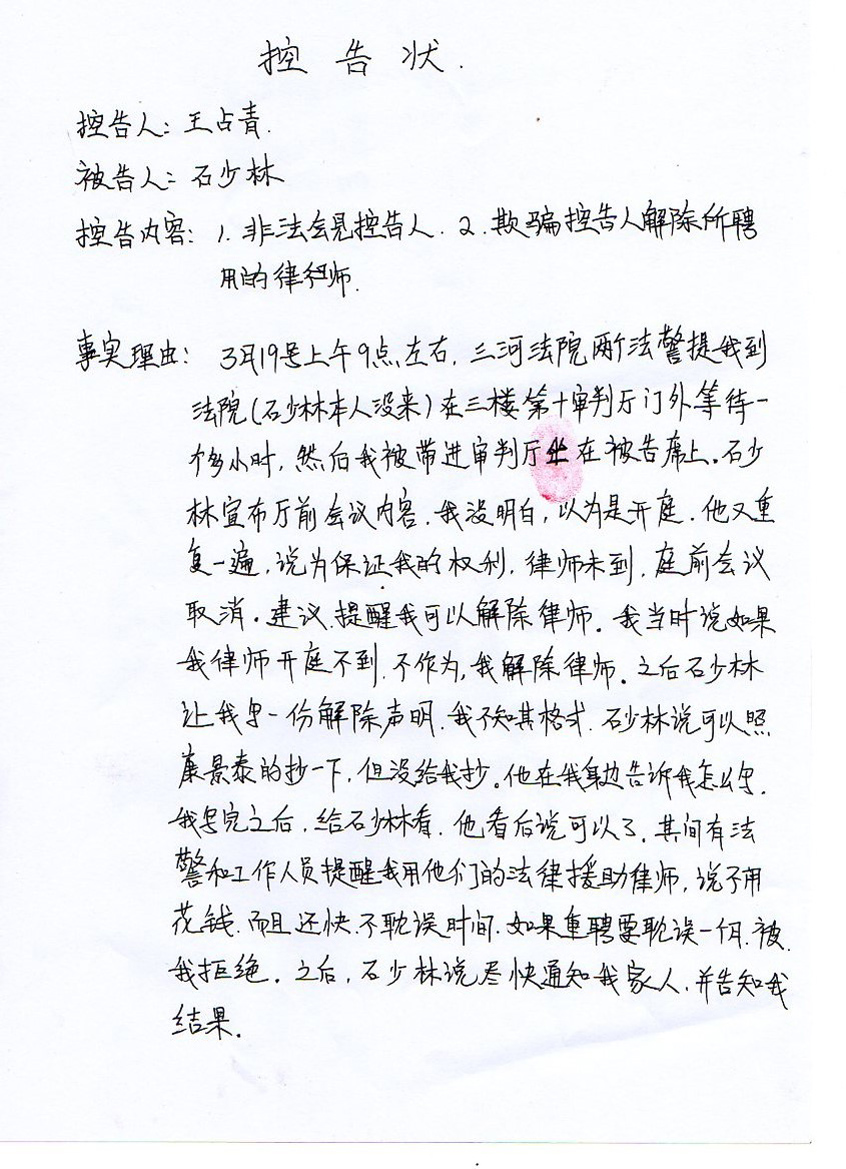 控告状.
控告人：王占青.
被告人：石少林
控告内容：1. 非法会见控告人. 2. 欺骗控告人解除所聘
用的律师.
事实理由：3月19号上午9点左右，三河法院两个法警提我到
法院（石少林本人没来）在三楼第十审判厅门外等待一
个多小时，然后我被带进审判厅坐在被告席上。石少
林宣布厅前会议内容．我没明白，以为是开庭．他又重
复一遍，说为保证我的权利．律师未到．庭前会议
取消。建议．提醒我可以解除律师。我当时说如果
我律师开庭不到．不作为，我解除律师。之后石少林
让我写一份解除声明．我不知其格式．石少林说可以照
康景泰的抄一下，但没给我抄。他在我身边告诉我怎么写．
我写完之后，给石少林看．他看后说可以了．其间有法
警和工作人员提醒我用他们的法律援助律师，说不用
花钱．而且还快．不耽误时间．如果重聘要耽误一个月．被
我拒绝。之后，石少林说尽快通知我家人．并告知我
结果．